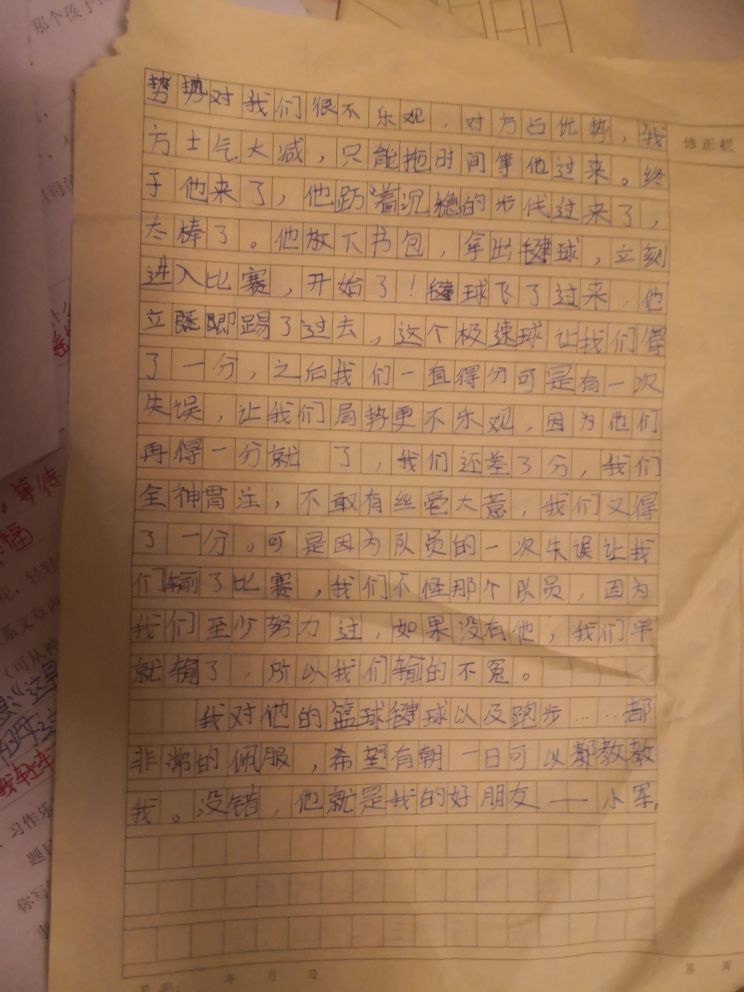 那个孩子
势势对我们很不乐观，对方占优势，我
方士气大减，只能拖时间等他过来。终
于他来了，他踏着沉稳的步伐过来了，
太棒了。他放下书包，拿出毽球，立刻
进入比赛，开始了！毽球飞了过来，他
立既即踢了过去，这个极速球让我们得
了一分，之后我们一直得分可是有一次
失误，让我们局势更不乐观，因为他们
再得一分就 了，我们还差了分，我们
全神贯注，不敢有丝毫大意，我们又得
了一分。可是因为队员的一次失误让我
们输了比赛，我们不怪那个队员，因为
我们至少努力过，如果没有他，我们早
就输了，所以我们输的不冤。
我对他的篮球毽球以及跑步……都
非常的佩服，希望有朝一日可以都教教
我。没错，他就是我的好朋友——小军。
修正栏
等待
福
系文章内
（可从神
习作乐
题目
你写
年 月 日
第 页